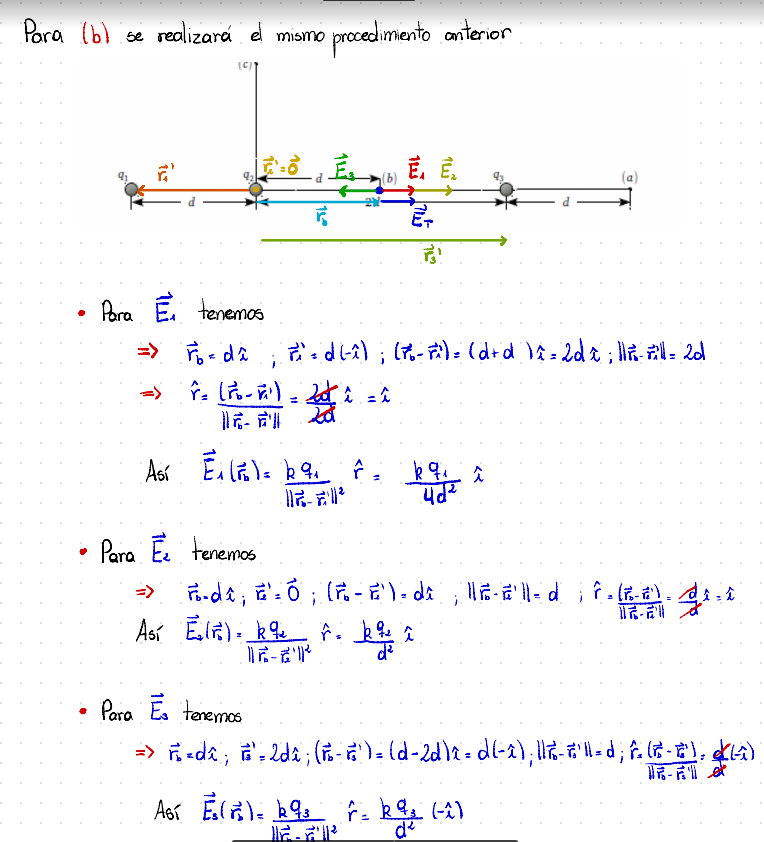 Para (b) se realizará el mismo procedimiento anterior
(c)
q₁ r⃗₁' q₂ r⃗₂'=0⃗ d E⃗₃ (b) E⃗₁ E⃗₂ q₃ (a)
d r⃗b 2d E⃗T d
r⃗₃'
• Para E⃗₁ tenemos
=> r⃗b = d î ; r⃗₁' = d(-î) ; (r⃗b - r⃗₁') = (d+d) î = 2d î ; ||r⃗b - r⃗₁'|| = 2d
=> r̂ = (r⃗b - r⃗₁') / ||r⃗b - r⃗₁'|| = 2d/2d î = î
Así E⃗₁(r⃗b) = k q₁ / ||r⃗b - r⃗₁'||² r̂ = k q₁ / 4d² î
• Para E⃗₂ tenemos
=> r⃗b = d î ; r⃗₂' = 0⃗ ; (r⃗b - r⃗₂') = d î ; ||r⃗b - r⃗₂'|| = d ; r̂ = (r⃗b - r⃗₂') / ||r⃗b - r⃗₂'|| = d/d î = î
Así E⃗₂(r⃗b) = k q₂ / ||r⃗b - r⃗₂'||² r̂ = k q₂ / d² î
• Para E⃗₃ tenemos
=> r⃗b = d î ; r⃗₃' = 2d î ; (r⃗b - r⃗₃') = (d-2d) î = d(-î) ; ||r⃗b - r⃗₃'|| = d ; r̂ = (r⃗b - r⃗₃') / ||r⃗b - r⃗₃'|| = d/d (-î)
Así E⃗₃(r⃗b) = k q₃ / ||r⃗b - r⃗₃'||² r̂ = k q₃ / d² (-î)